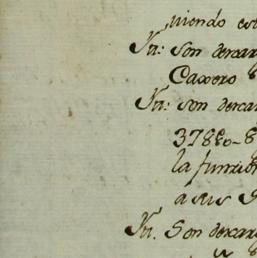 niendo est
Yn: Son dercar
Caxero
Yn: son dercar
3788
la funcion
a sus S
Yn. Son dercar